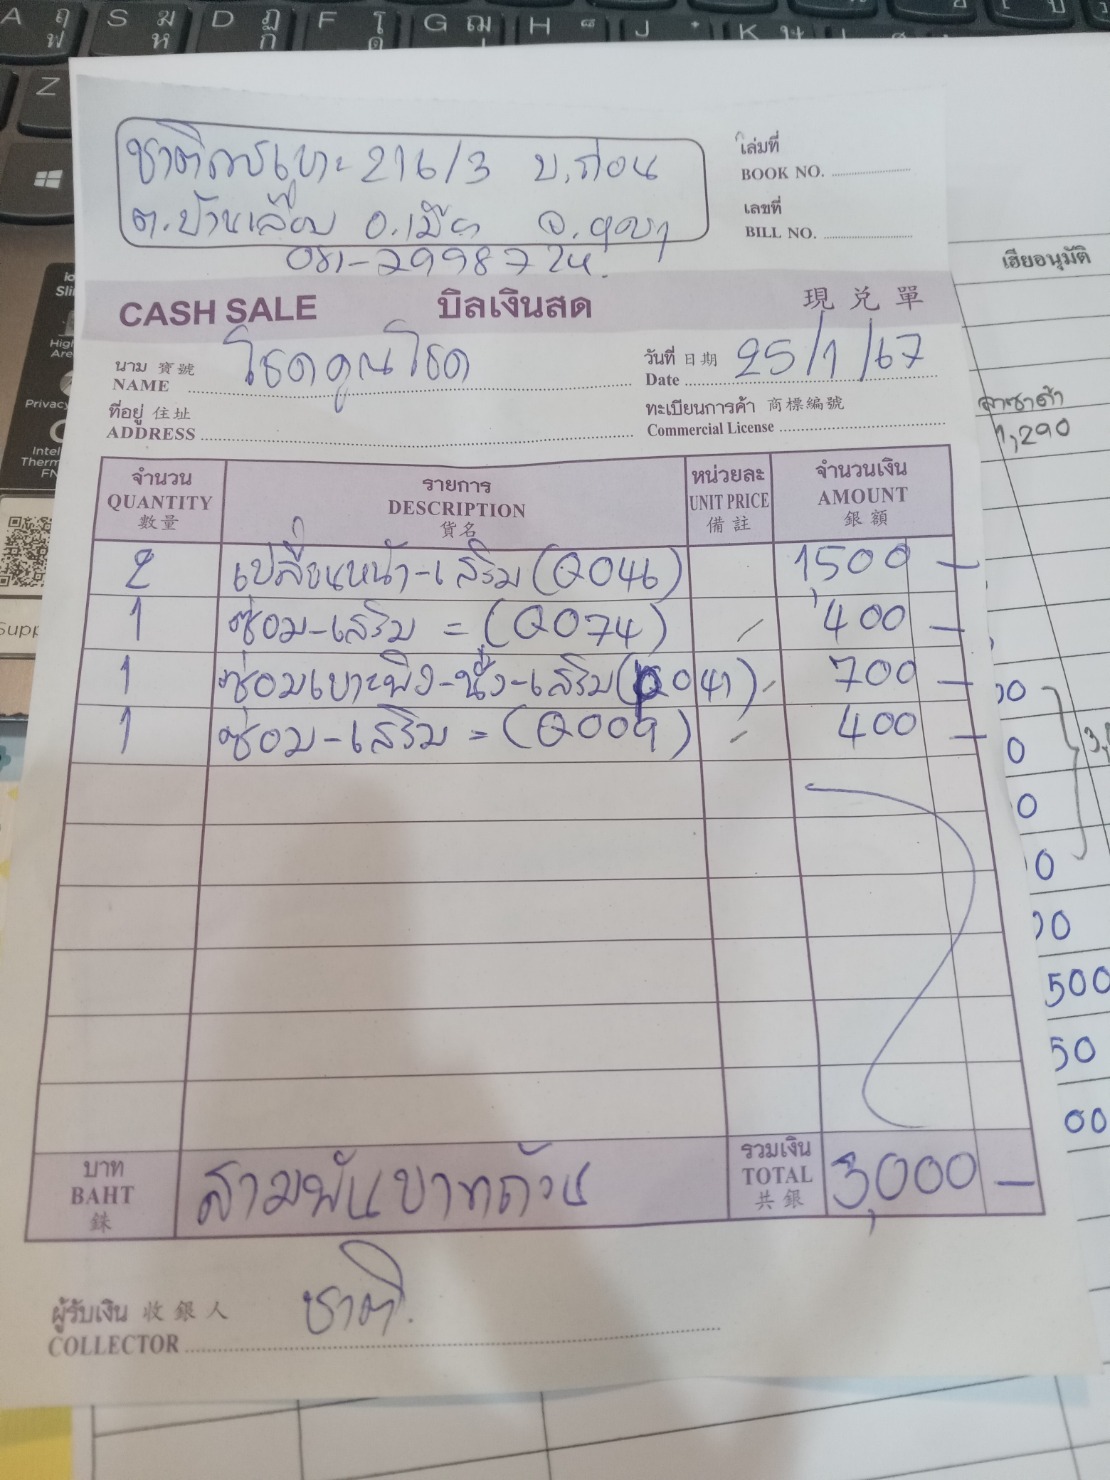 A ฤ ฟ S ฆ ห D ฏ ก F โ ด G ฌ H J K ษ
Z
ชาติการเบาะ 216/3 บ.ก่อน
ต.บ้านเลื่อม อ.เมือง จ.อุดรฯ
081-2998724.
เล่มที่
BOOK NO.
เลขที่
BILL NO.
CASH SALE บิลเงินสด 現兌單
นาม 寶號 NAME โชคคูณโชค
วันที่ 日期 Date 25/1/67
ที่อยู่ 住址 ADDRESS
ทะเบียนการค้า 商標編號 Commercial License
จำนวน QUANTITY 數量 รายการ DESCRIPTION 貨名 หน่วยละ UNIT PRICE 備註 จำนวนเงิน AMOUNT 銀額
2 เปลี่ยนหน้า-เสริม (Q046) 1,500 -
1 ซ่อม-เสริม = (Q074) / 400 -
1 ซ่อมเบาะพิง-นั่ง-เสริม (Q041) / 700 -
1 ซ่อม-เสริม = (Q009) / 400 -
บาท BAHT 銖 สามพันบาทถ้วน รวมเงิน TOTAL 共銀 3,000 -
ผู้รับเงิน 收銀人 COLLECTOR ชาติ.
เฮียอนุมัติ
ลาซาด้า
1,290
00
0
0
0
00
500
50
00
Privacy
Supp